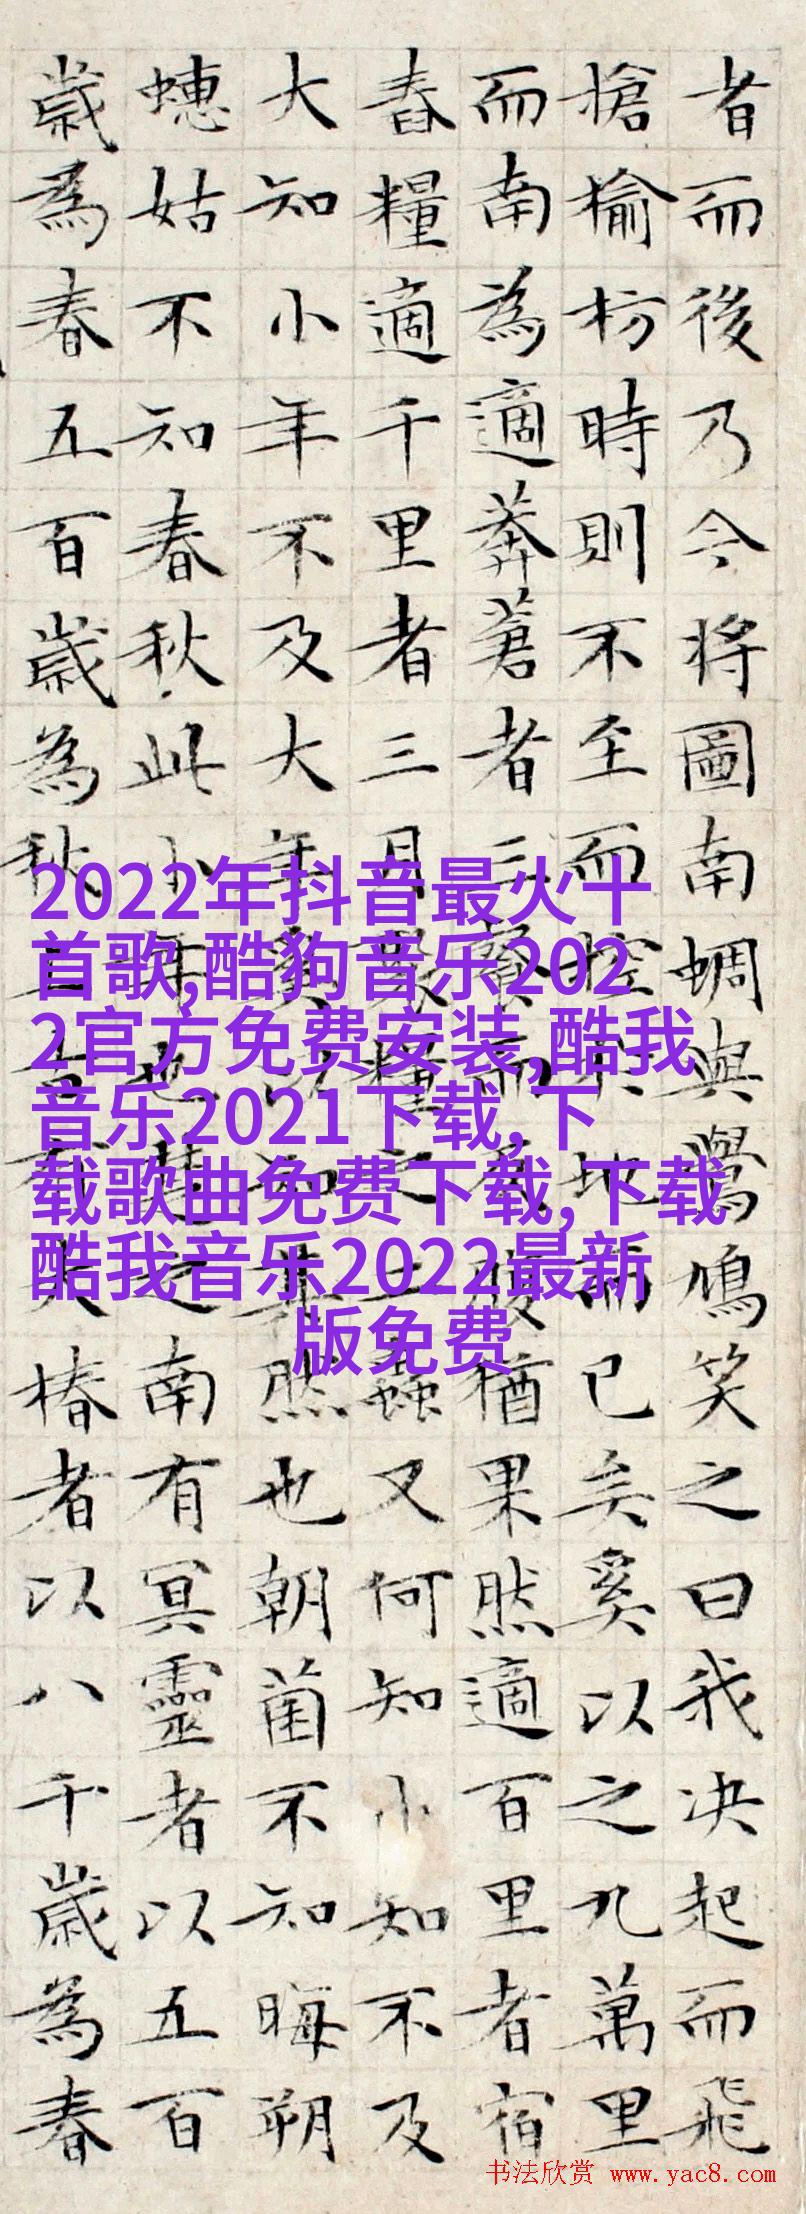 者而後乃今将圖南蜩與鷽鳩笑之曰我决起而飛
搶榆枋時則不至而控於地而已矣奚以之九萬里
而南為適莽蒼者三餐而反腹猶果然適百里者宿
舂糧適千里者三月聚糧之二蟲又何知小知不及
大知小年不及大年奚以知其然也朝菌不知晦朔
蟪姑不知春秋此小年也楚之南有冥靈者以五百
歲為春五百歲為秋上古有大椿者以八千歲為春
2022年抖音最火十
首歌,酷狗音乐202
2官方免费安装,酷我
音乐2021下载,下
载歌曲免费下载,下载
酷我音乐2022最新
版免费
书法欣赏 www.yac8.com